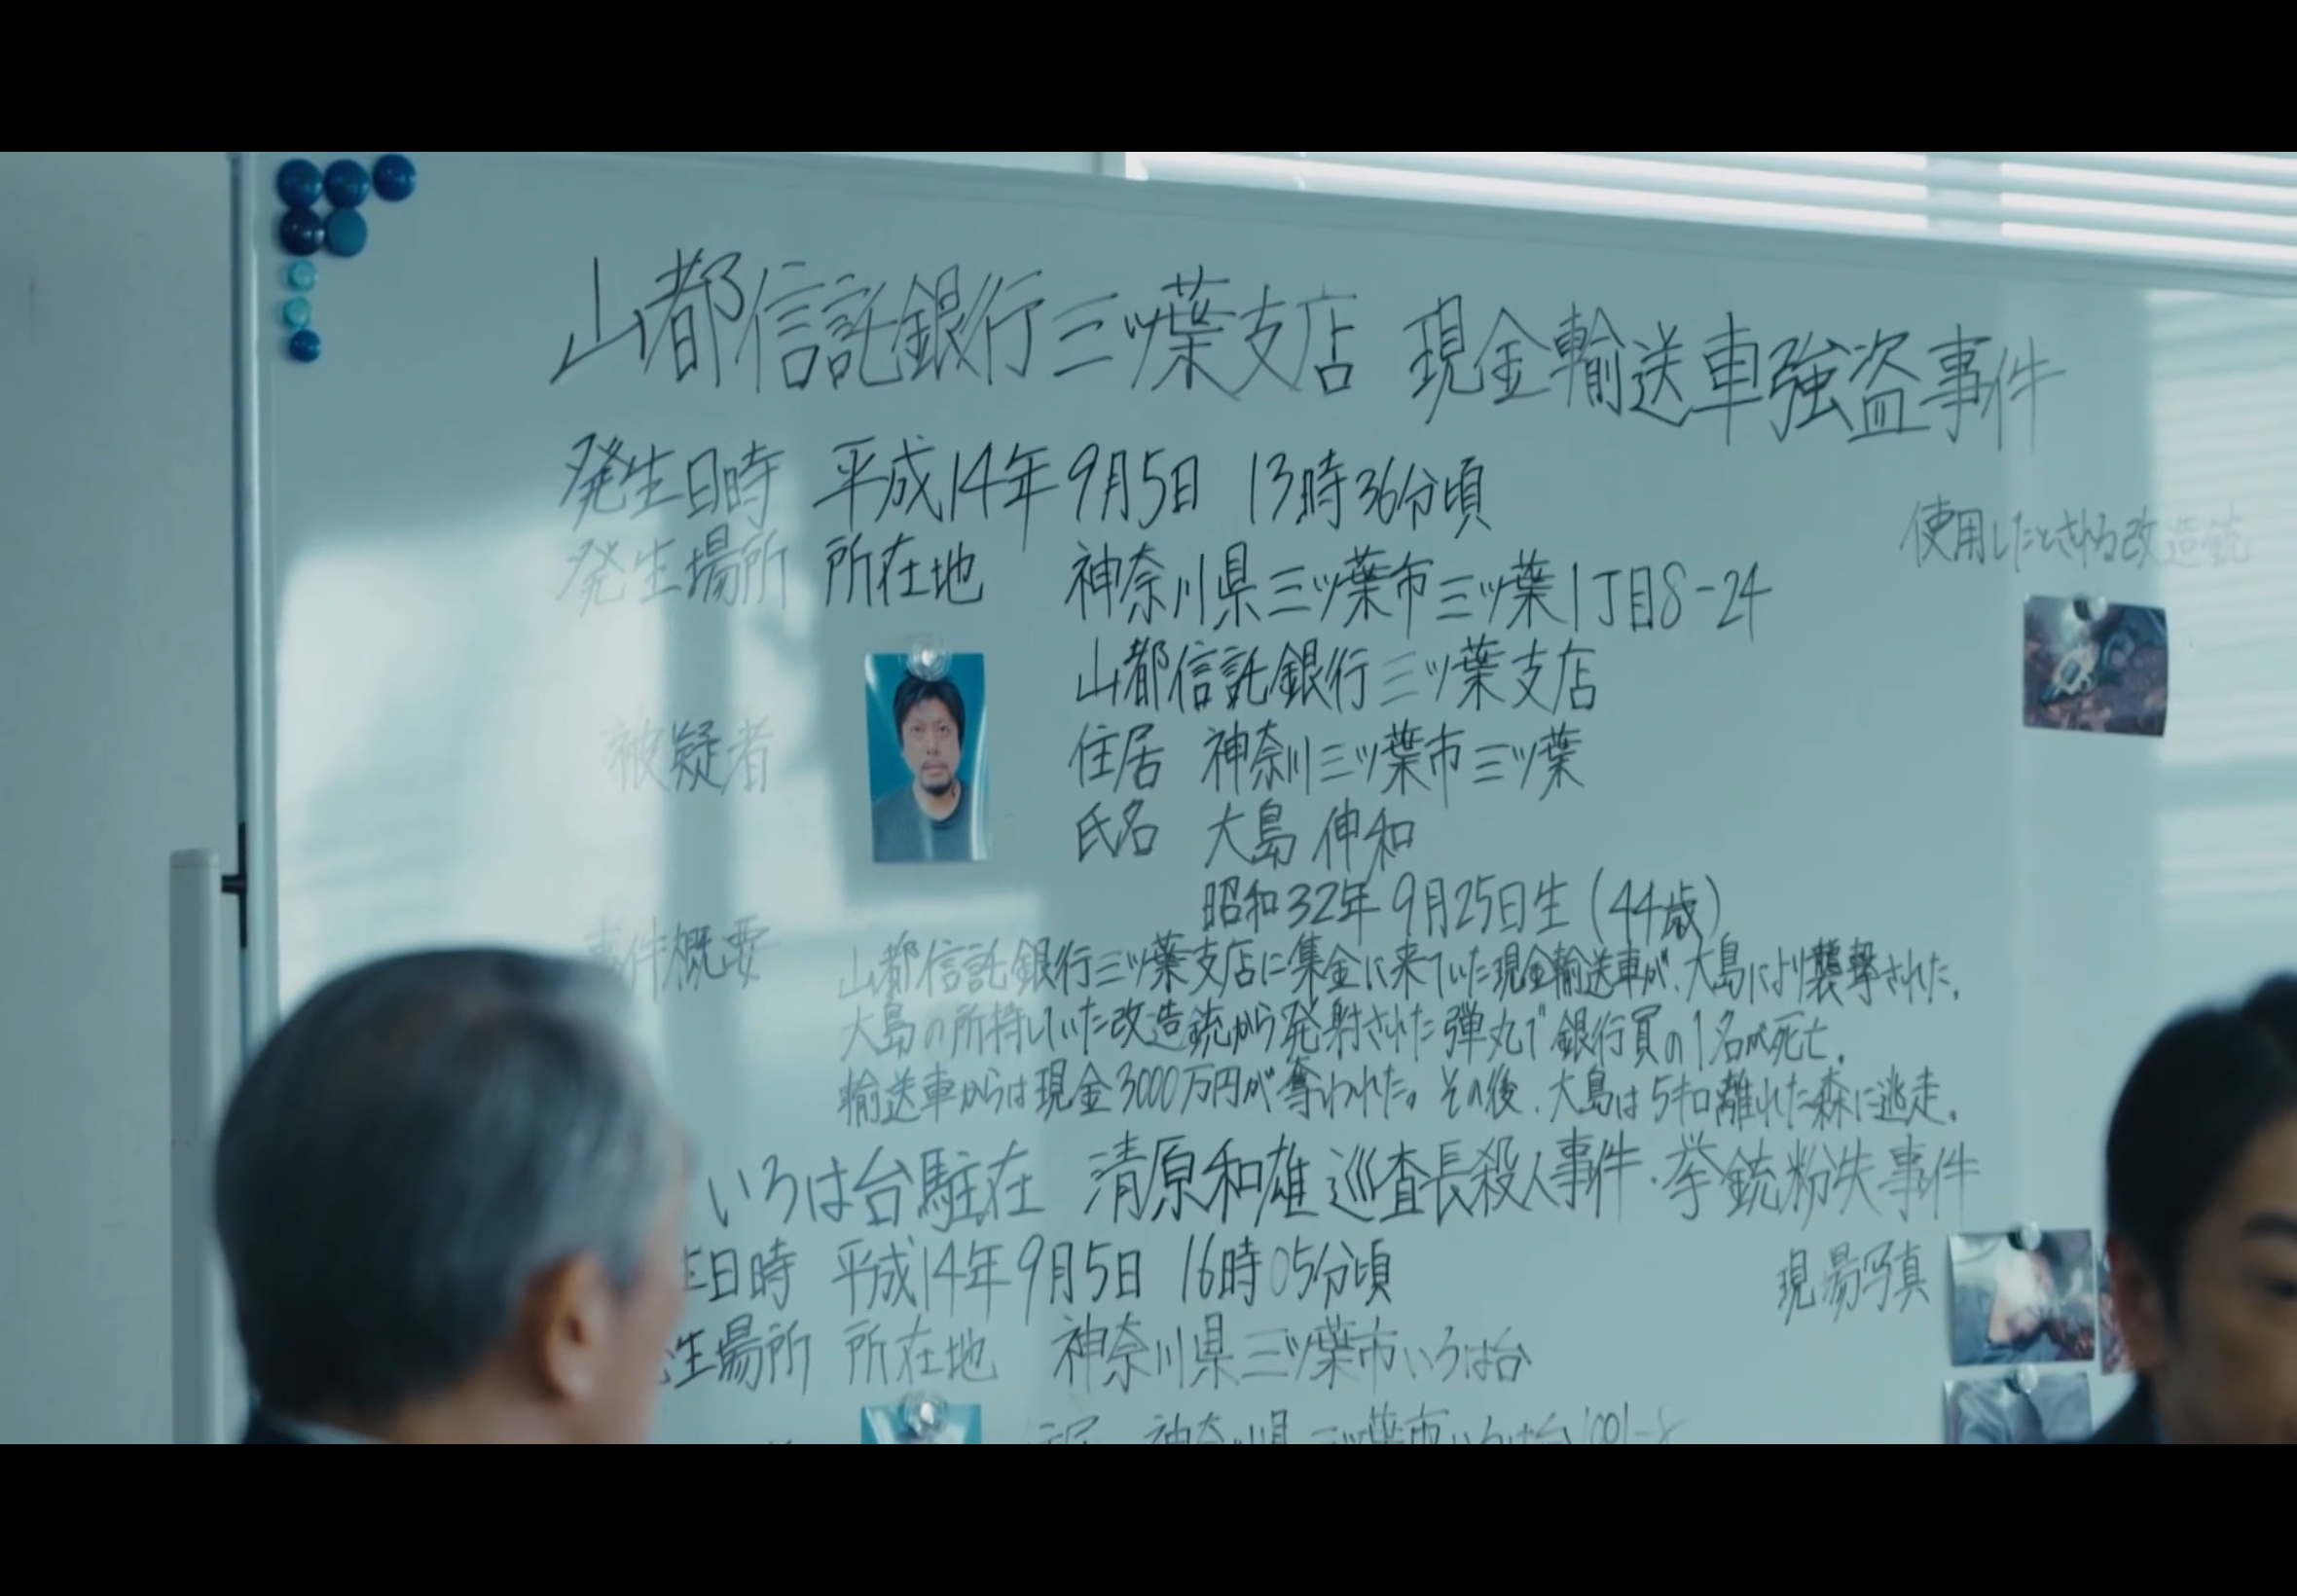 山都信託銀行三ッ葉支店 現金輸送車強盗事件
発生日時 平成14年9月5日 13時36分頃
使用したとされる改造銃
発生場所 所在地 神奈川県三ッ葉市三ッ葉1丁目8-24
山都信託銀行三ッ葉支店
被疑者
住居 神奈川三ッ葉市三ッ葉
氏名 大島 伸和
昭和32年9月25日生(44歳)
事件概要 山都信託銀行三ッ葉支店に集金に来ていた現金輸送車が、大島により襲撃された。
大島の所持していた改造銃から発射された弾丸で銀行員の1名が死亡。
輸送車からは現金3000万円が奪われた。その後、大島は5キロ離れた森に逃走。
いろは台駐在 清原和雄巡査長殺人事件・挙銃粉失事件
生日時 平成14年9月5日 16時05分頃
現場写真
生場所 所在地 神奈川県三ッ葉市いろは台
神奈川県三ッ葉市いろは台1001-8